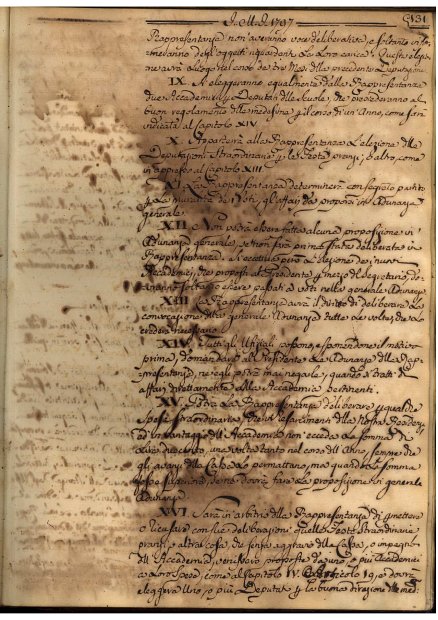 I. M. I. 1797
131
Rappresentanza non averanno voce deliberativa, e soltanto in
degl'oggetti riguardanti la loro carica. Questa elezione
averà luogo nel corso de tre Mesi della precedente Deputazione
IX. Si eleggeranno egualmente dalla Rappresentanza
due Accademici Deputati alle Scuole, che presiederanno al
buon regolamento delle medesime pel corso di un'Anno, come sarà
indicato al Capitolo XIV.
X. Apparterrà alla Rappresentanza l'elezione delle
Deputazioni Straordinarie per le Feste, pranzi, ed altro, come
in appresso al Capitolo XIII
XI. La Rappresentanza determinerà con segreto partito
a maggiorità de Voti, gl'affari da proporsi in Adunanza
generale.
XII. Non potrà essere fatta alcuna proposizione in
Adunanza generale, se non sarà prima stata deliberata in
Rappresentanza. Si eccettua però l'elezione de nuovi
Accademici, che proposti al Presidente per mezzo del Segretario,
potranno essere passati a voti nella generale Adunanza
XIII. La Rappresentanza averà il diritto di deliberare la
convocazione della generale Adunanza tutte le volte, che lo
crederà necessario.
XIV. Tutti gli Ufficiali possono, esponendone il motivo
prima, domandare al Presidente la Adunanza della Rap-
presentanza, ne egli potrà mai negarla, quando si tratti di
affari direttamente alla Accademia pertinenti.
XV. Potrà la Rappresentanza deliberare qualche
spesa straordinaria,
in vantaggio dell'Accademia non ecceda la somma di
Lire duecento, una volta tanto nel corso dell'Anno, semprechè
gli avanzi della Cassa lo permettano, ma quando la somma
fosse superiore, se ne dovrà fare la proposizione in generale
Adunanza.
XVI. Sarà in arbitrio della Rappresentanza di ammettere
o ricusare con sue deliberazioni quelle Feste Straordinarie
pranzi, o altra cosa, che senza aggravio della Cassa, o impegno
dell'Accademia, venissero proposte da uno, o più Accademici
a loro spese, come al Capitolo IV. Articolo 19, e dovrà
eleggere Uno, o più Deputati per la buona direzione delle med.